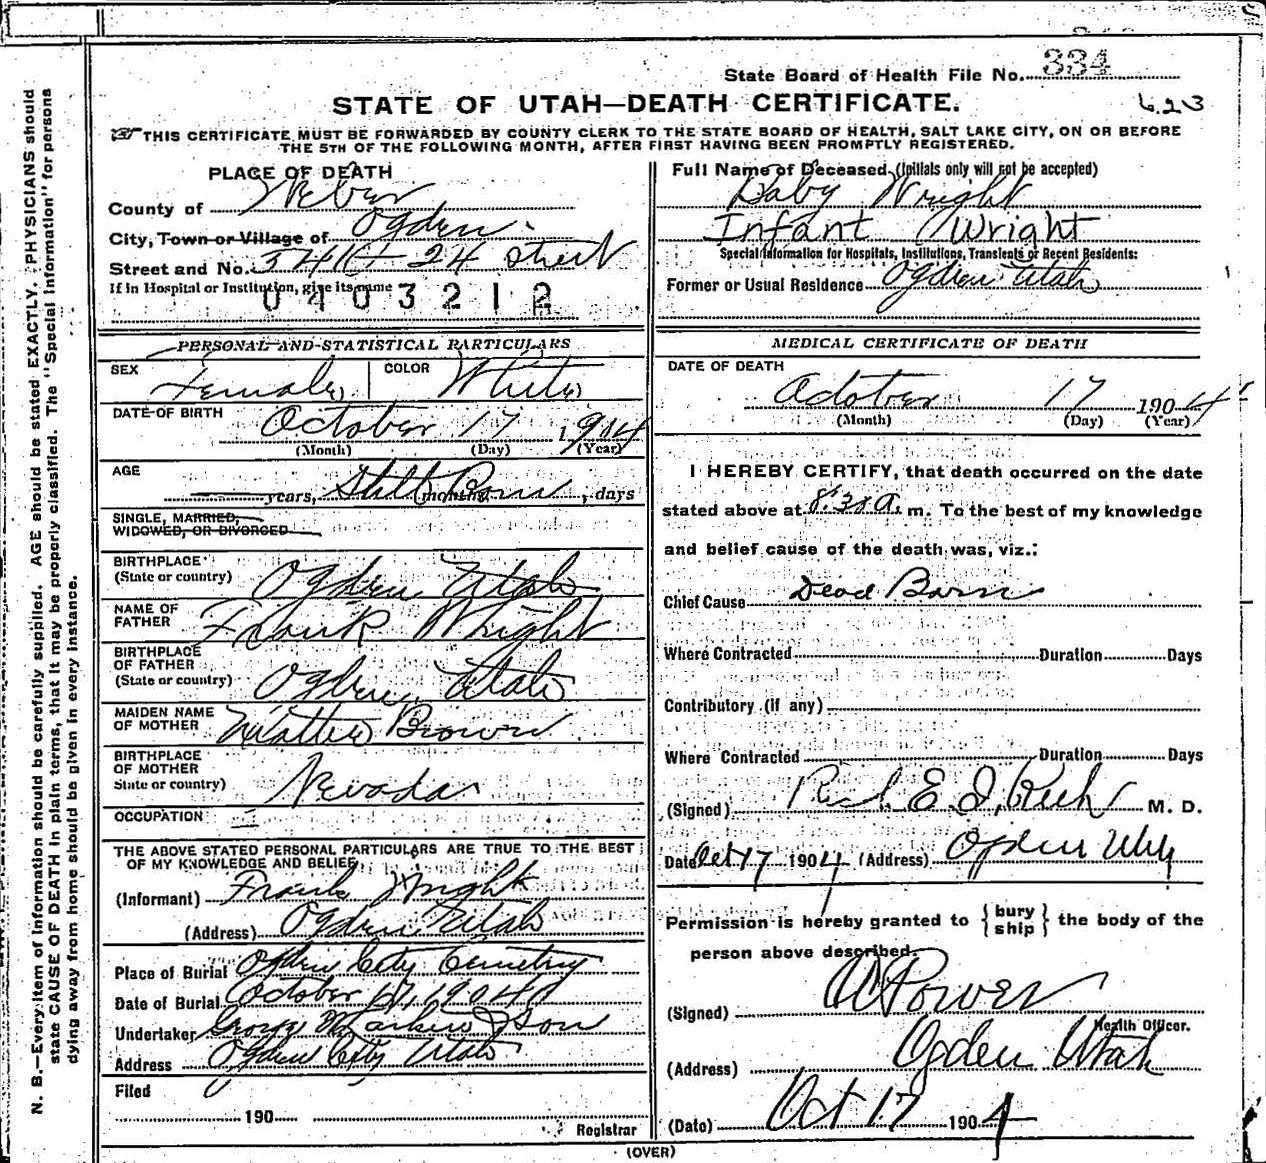 State Board of Health File No. 334
STATE OF UTAH—DEATH CERTIFICATE.
6.23
THIS CERTIFICATE MUST BE FORWARDED BY COUNTY CLERK TO THE STATE BOARD OF HEALTH, SALT LAKE CITY, ON OR BEFORE
THE 5TH OF THE FOLLOWING MONTH, AFTER FIRST HAVING BEEN PROMPTLY REGISTERED.
PLACE OF DEATH
County of Weber
City, Town or Village of Ogden
Street and No. 24 Street
If in Hospital or Institution, give its name
0403212
Full Name of Deceased (Initials only will not be accepted)
Baby Wright
Infant Wright
Special Information for Hospitals, Institutions, Transients or Recent Residents:
Former or Usual Residence Ogden Utah
PERSONAL AND STATISTICAL PARTICULARS
SEX Female COLOR White
DATE OF BIRTH October 17 1904
(Month) (Day) (Year)
AGE
years, Still Born months, days
SINGLE, MARRIED,
WIDOWED, OR DIVORCED
BIRTHPLACE
(State or country) Ogden Utah
NAME OF
FATHER Frank Wright
BIRTHPLACE
OF FATHER
(State or country) Ogden Utah
MAIDEN NAME
OF MOTHER Brown
BIRTHPLACE
OF MOTHER
State or country) Nevada
OCCUPATION
THE ABOVE STATED PERSONAL PARTICULARS ARE TRUE TO THE BEST
OF MY KNOWLEDGE AND BELIEF
(Informant) Frank Wright
(Address) Ogden Utah
Place of Burial Ogden City Cemetry
Date of Burial October 17, 1904
Undertaker George Larkin & Son
Address Ogden City Utah
Filed
190
Registrar
MEDICAL CERTIFICATE OF DEATH
DATE OF DEATH
October 17 1904
(Month) (Day) (Year)
I HEREBY CERTIFY, that death occurred on the date
stated above at 8:30 A. m. To the best of my knowledge
and belief cause of the death was, viz.:
Chief Cause Dead Born
Where Contracted Duration Days
Contributory (if any)
Where Contracted Duration Days
(Signed) M. D.
Date Oct 17 1904 (Address) Ogden Utah
Permission is hereby granted to { bury ship } the body of the
person above described.
(Signed) Power
Health Officer.
(Address) Ogden Utah
(Date) Oct 17 1904
(OVER)
N. B.—Every item of information should be carefully supplied. AGE should be stated EXACTLY. PHYSICIANS should
state CAUSE OF DEATH in plain terms, that it may be properly classified. The "Special Information" for persons
dying away from home should be given in every instance.